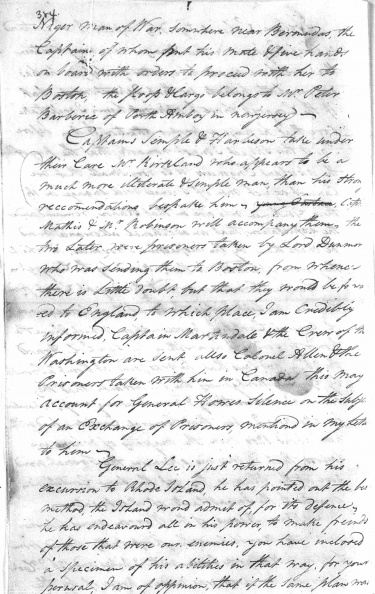 374
Niger man of War, somwhere near Bermudas, the
Captain of whom put his mate & five hands
on board with orders to proceed with her to
Boston, the Sloop & Cargo belongs to Mr. Peter
Barberie of Perth Amboy in new jersey—
Captains Semple & Harbeson take under
their Care Mr. Kirkland who appears to be a
much more illiterate & simple man, than his Stron
reccomendations bespoke him—
Mathis & Mr. Robinson will accompany them, the
two Later were prisoners taken by Lord Dunmor
who was sending them to Boston, from whence
there is Little doubt, but that they would be forw
ed to England to which place, I am Credibly
informed, Captain Martindale & the Crew of th
Washington are sent allso Colonel Allen & the
Prisoners taken with him in Canada this may
account for General Howes Silence on the Subje
of an Exchange of Prisoners, mentiond in my lette
to him—
General Lee is just returned from his
excursion to Rhode Island, he has pointed out the bes
method the Island woud admit of, for its defence,
he has endeavourd all in his power, to make freinds
of those that were our enemies, you have inclosed
a Specimen of his abilities in that way, for your
perusal, I am of opinion, that if the same plan was